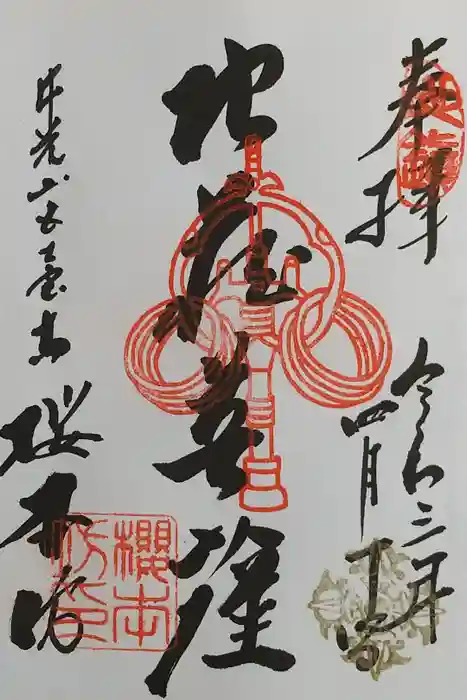 奉拝
令和三年
四月十日
地蔵菩薩
井光山五臺寺
桜本坊
櫻本
坊印